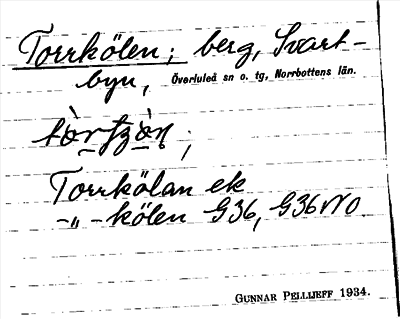 Torrkölen; berg, Svart-
byn, Överluleå sn o. tg, Norrbottens län.
Torrkölan ek
-„- kölen G36, G36NO
GUNNAR PELLIJEFF 1934.